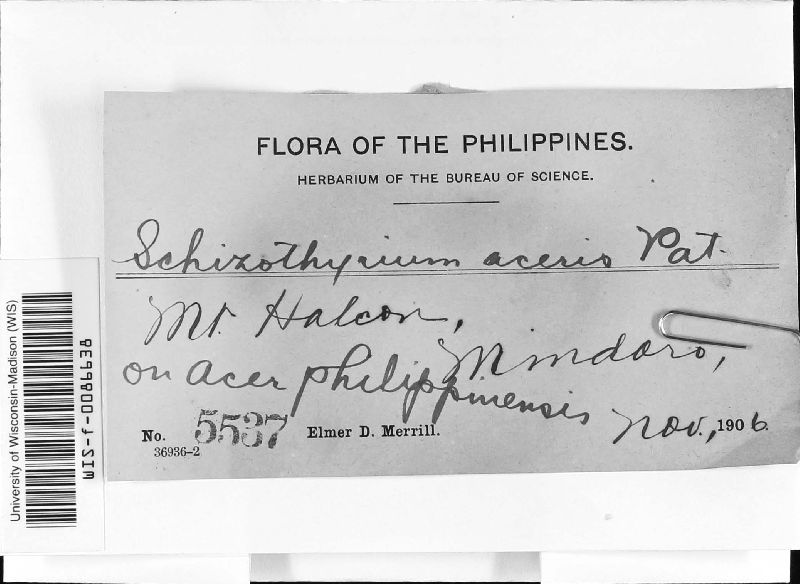 FLORA OF THE PHILIPPINES.
HERBARIUM OF THE BUREAU OF SCIENCE.
Schizothyrium aceris Pat.
Mt. Halcon,
Mindoro,
on Acer philippinensis
Nov., 1906.
No. 5537 Elmer D. Merrill.
36936-2
University of Wisconsin-Madison (WIS)
WIS-f-0086638